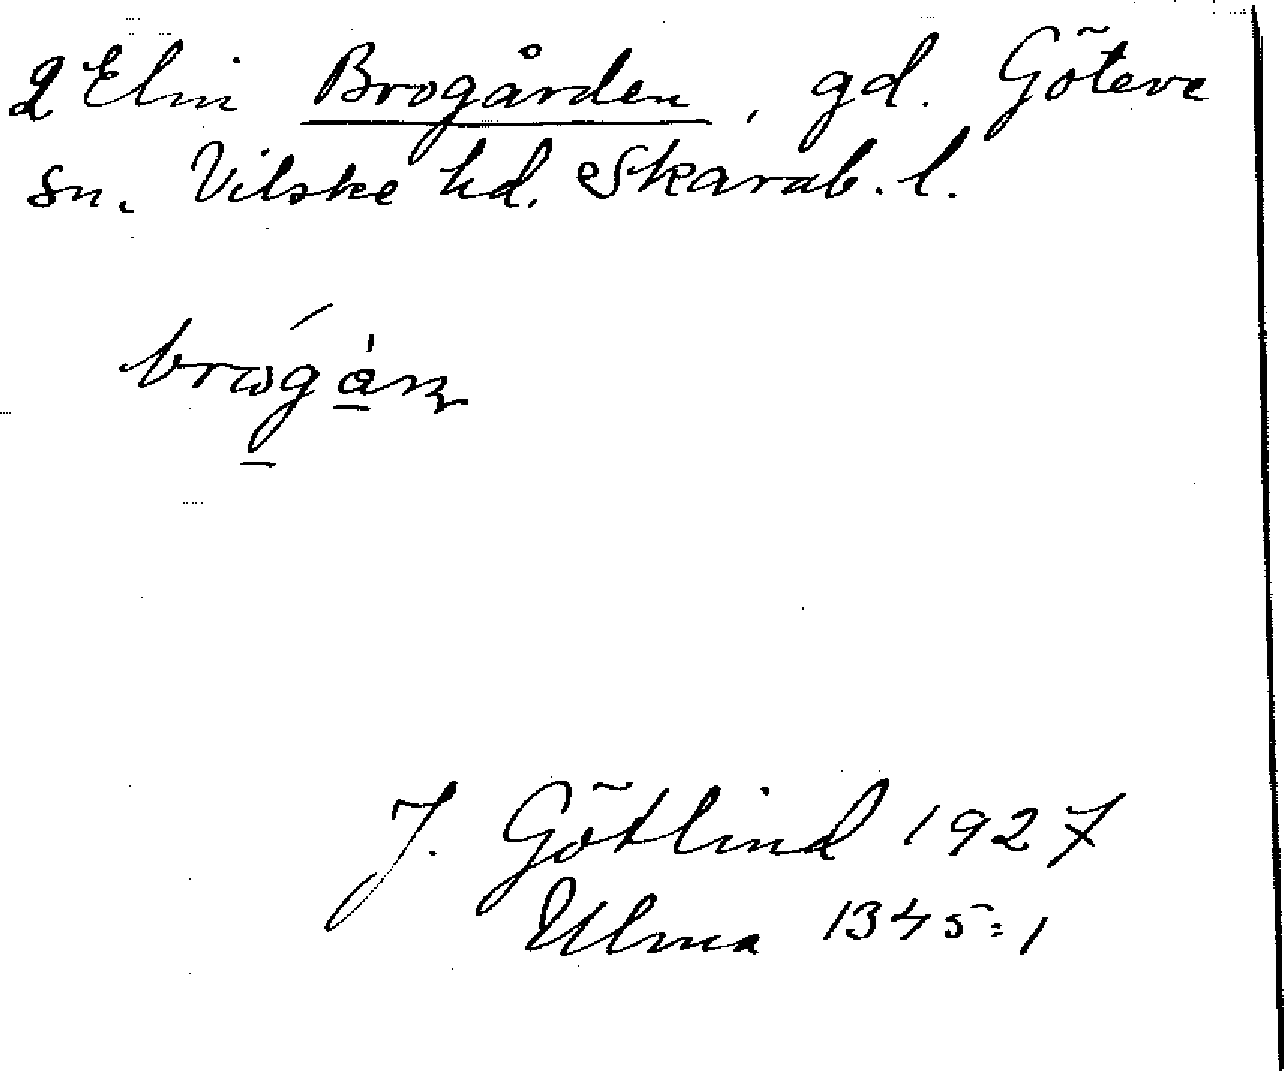 2 Elin Brogården, gd. Göteve
sn. Vilske hd. Skarab. l.
J. Götlind 1927
Ulma 1345:1